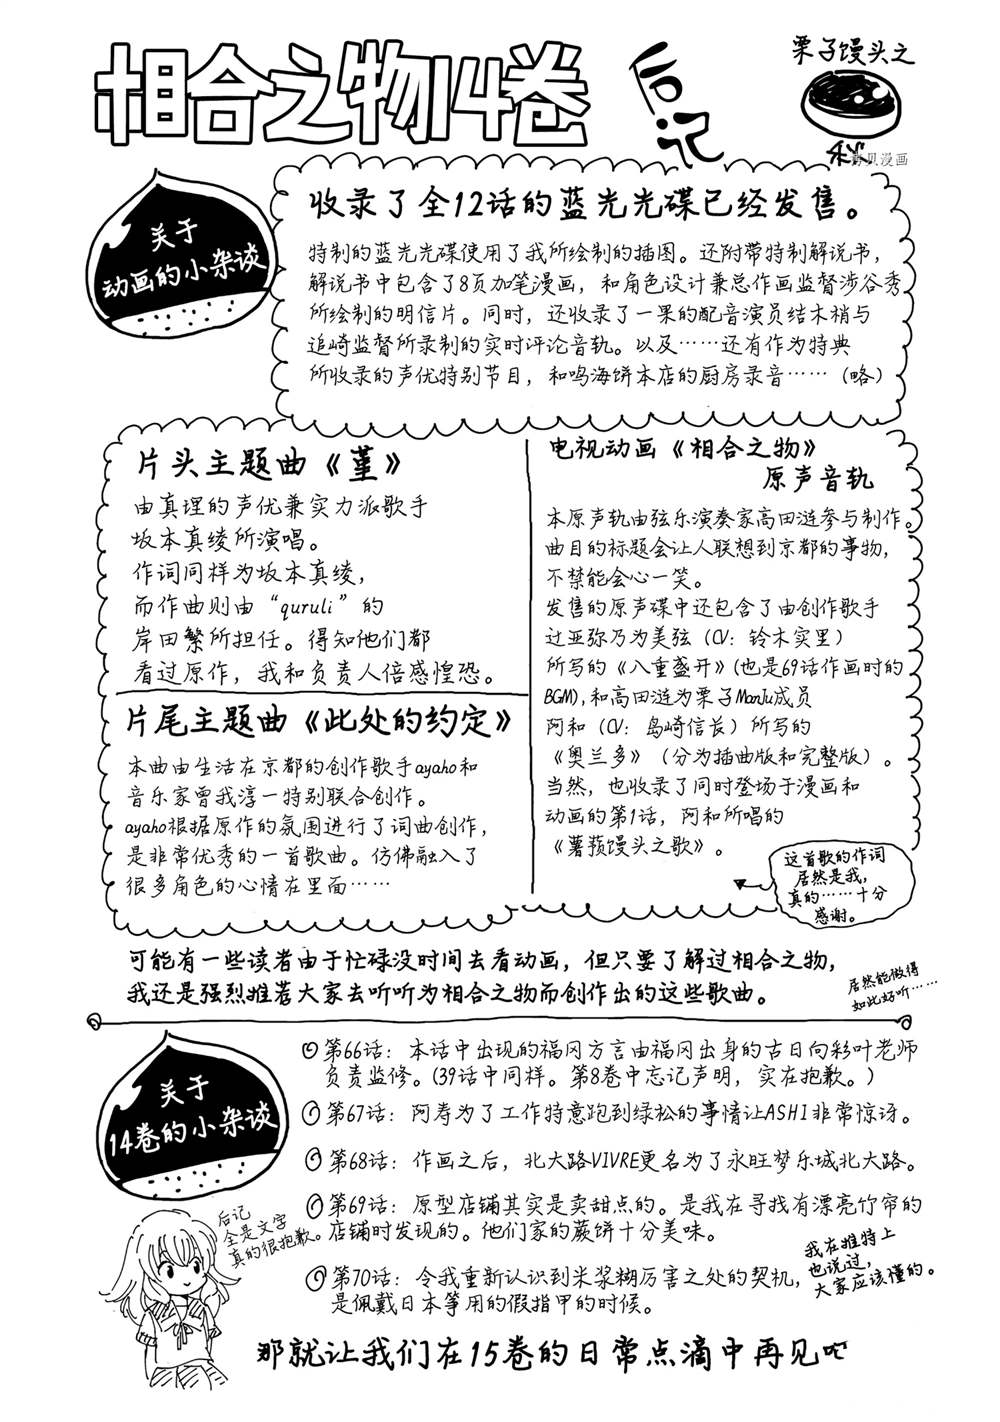 相合之物14卷
后记
栗子馒头之
拷贝漫画
关于
动画的小杂谈
收录了全12话的蓝光光碟已经发售。
特制的蓝光光碟使用了我所绘制的插图。还附带特制解说书，
解说书中包含了8页加笔漫画，和角色设计兼总作画监督涉谷秀
所绘制的明信片。同时，还收录了一果的配音演员结木梢与
追崎监督所录制的实时评论音轨。以及……还有作为特典
所收录的声优特别节目，和鸣海饼本店的厨房录音……（略）
片头主题曲《堇》
由真理的声优兼实力派歌手
坂本真绫所演唱。
作词同样为坂本真绫，
而作曲则由“quruli”的
岸田繁所担任。得知他们都
看过原作，我和负责人倍感惶恐。
片尾主题曲《此处的约定》
本曲由生活在京都的创作歌手ayaho和
音乐家曾我淳一特别联合创作。
ayaho根据原作的氛围进行了词曲创作，
是非常优秀的一首歌曲。仿佛融入了
很多角色的心情在里面……
电视动画《相合之物》
原声音轨
本原声轨由弦乐演奏家高田涟参与制作。
曲目的标题会让人联想到京都的事物，
不禁能会心一笑。
发售的原声碟中还包含了由创作歌手
辻亚弥乃为美弦（CV：铃木实里）
所写的《八重盛开》（也是69话作画时的
BGM），和高田涟为栗子ManJu成员
阿和（CV：岛崎信长）所写的
《奥兰多》（分为插曲版和完整版）。
当然，也收录了同时登场于漫画和
动画的第1话，阿和所唱的
《薯蓣馒头之歌》。
这首歌的作词
居然是我，
真的……十分
感谢。
可能有一些读者由于忙碌没时间去看动画，但只要了解过相合之物，
我还是强烈推荐大家去听听为相合之物而创作出的这些歌曲。
居然能做得
如此好听……
关于
14卷的小杂谈
第66话：本话中出现的福冈方言由福冈出身的古日向彩叶老师
负责监修。（39话中同样。第8卷中忘记声明，实在抱歉。）
第67话：阿寿为了工作特意跑到绿松的事情让ASHI非常惊讶。
第68话：作画之后，北大路VIVRE更名为了永旺梦乐城北大路。
第69话：原型店铺其实是卖甜点的。是我在寻找有漂亮竹帘的
店铺时发现的。他们家的蕨饼十分美味。
第70话：令我重新认识到米浆糊厉害之处的契机，
是佩戴日本筝用的假指甲的时候。
我在推特上
也说过，
大家应该懂的。
后记
全是文字
真的很抱歉。
那就让我们在15卷的日常点滴中再见吧